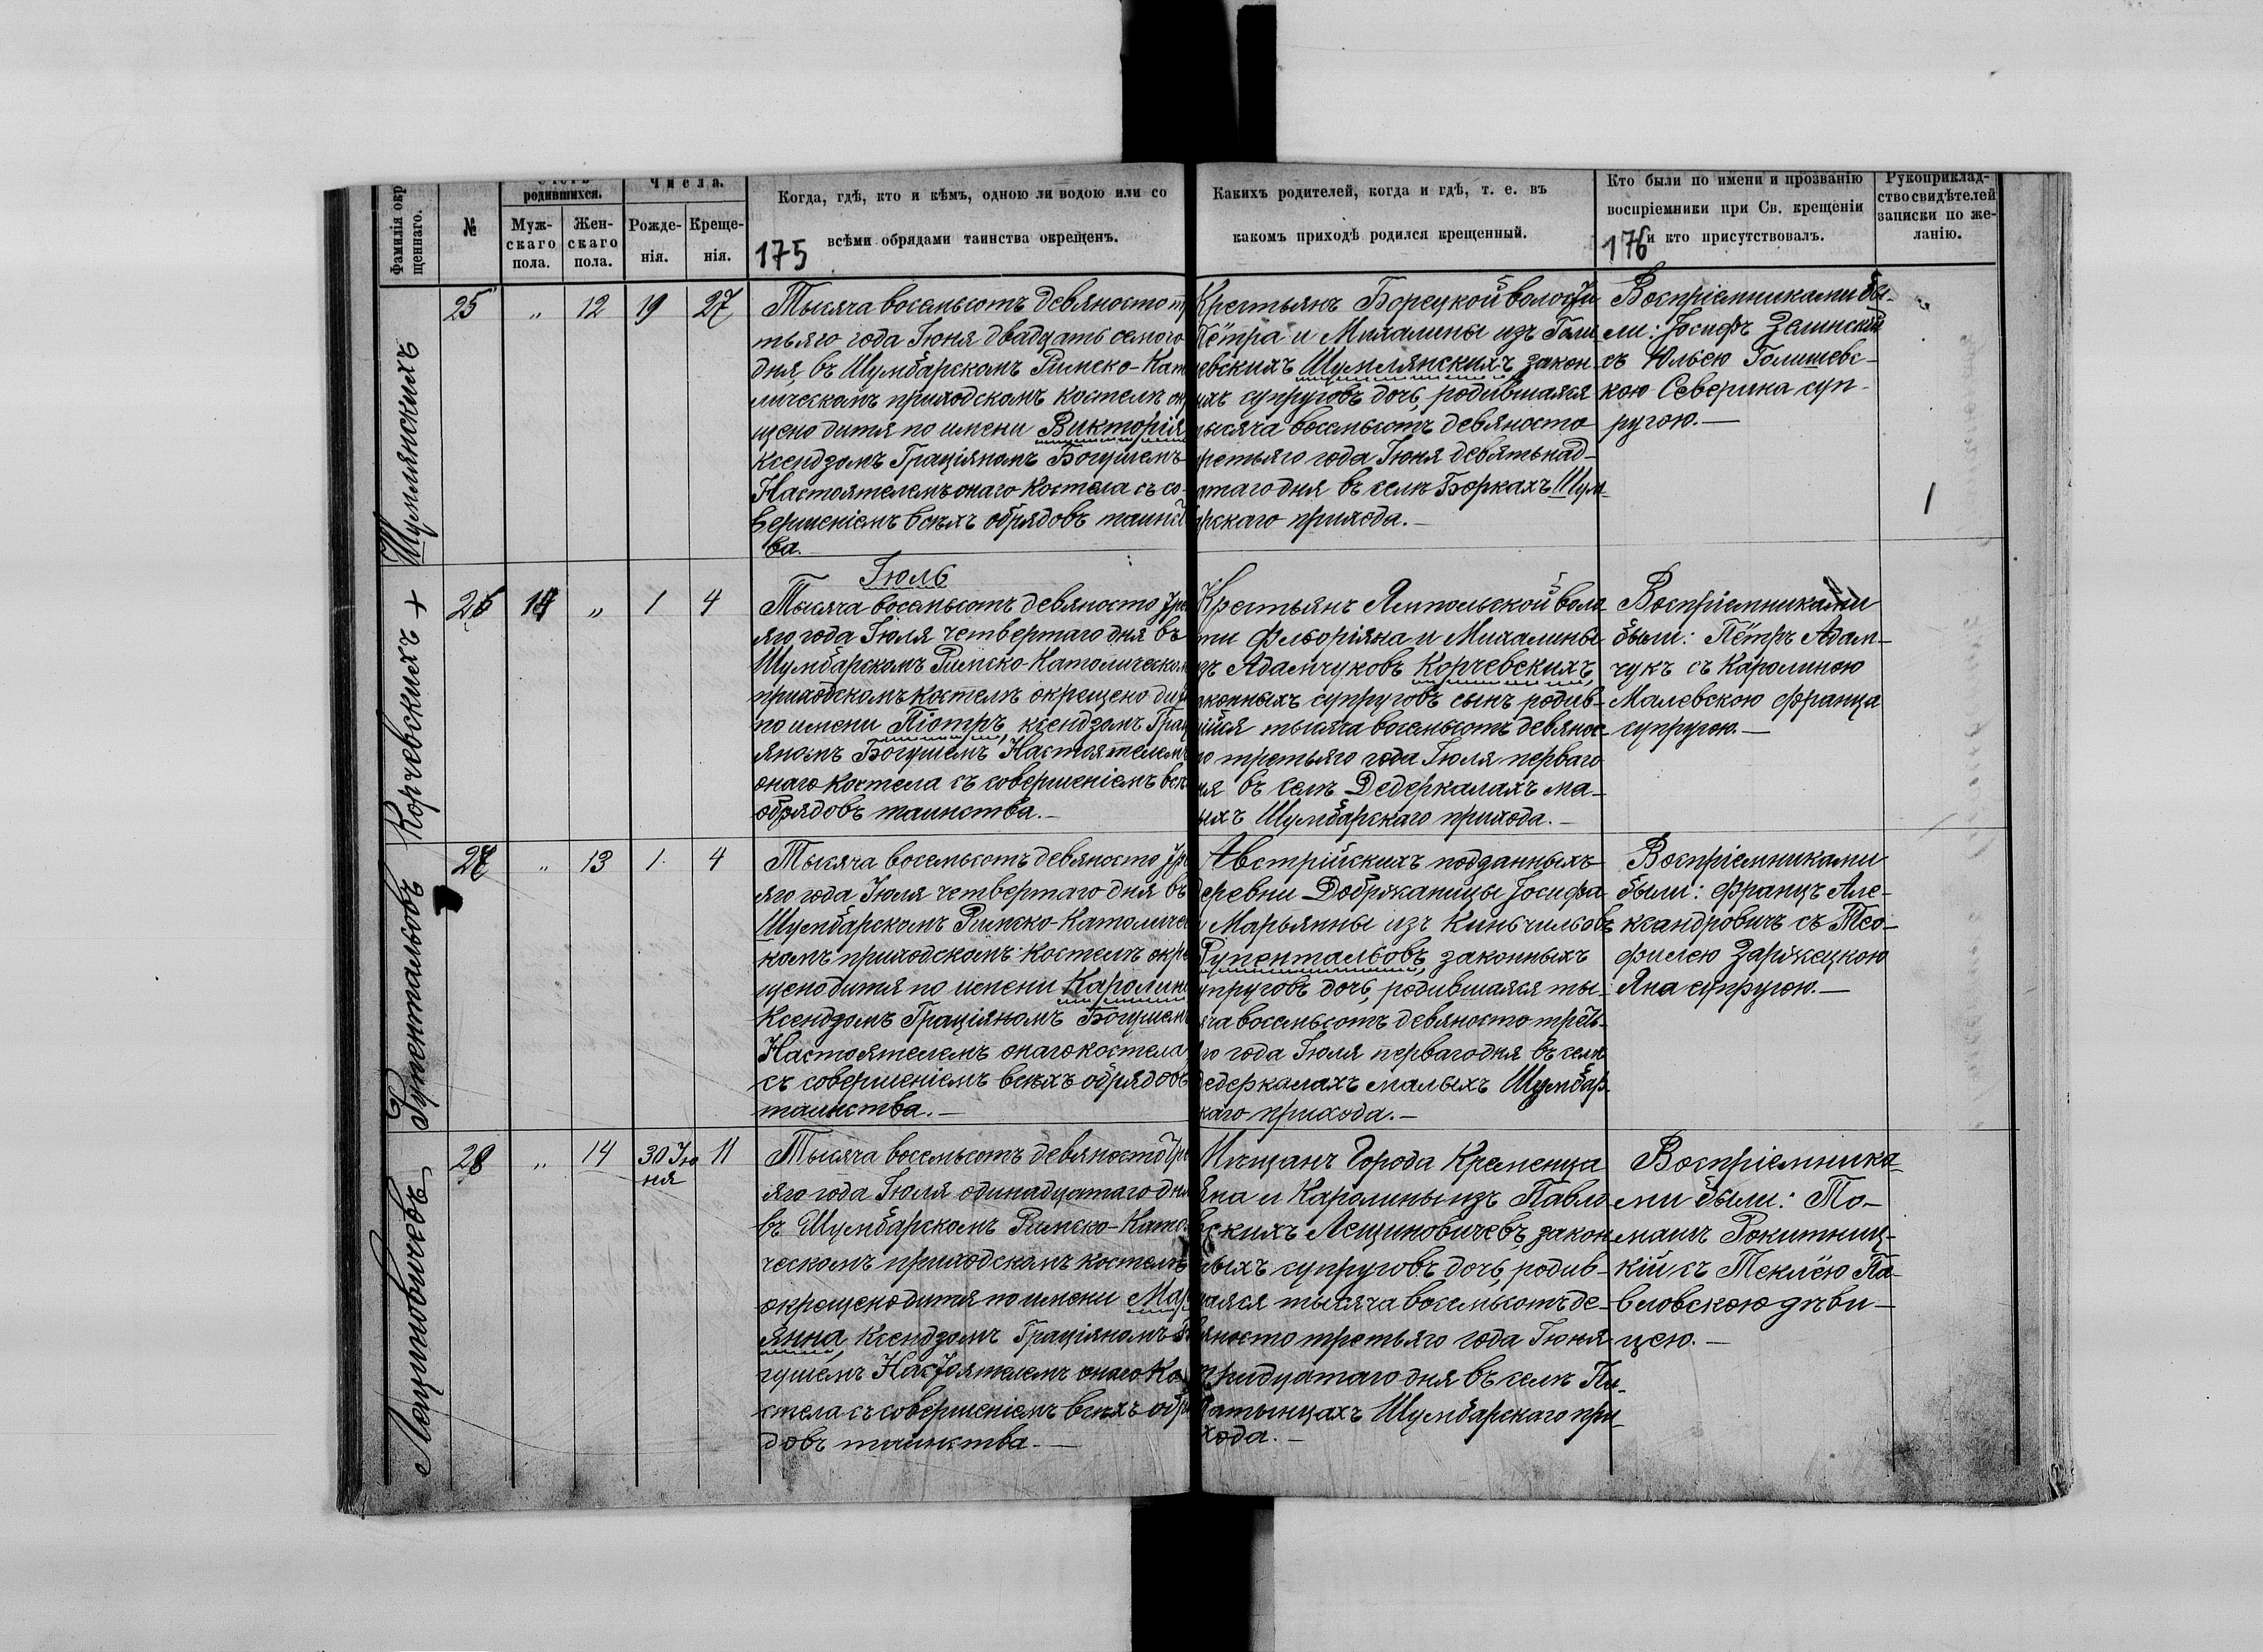 Фамилія окр
щеннаго.
№
родившихся.
Муж-
скаго
пола.
Жен-
скаго
пола.
Числа.
Рожде-
нія.
Креще-
нія.
Когда, гдѣ, кто и кѣмъ, одною ли водою или со
всѣми обрядами таинства окрещенъ.
175
Какихъ родителей, когда и гдѣ, т. е. въ
какомъ приходѣ родился крещенный.
Кто были по имени и прозванію
воспріемники при Св. крещеніи
и кто присутствовалъ.
176
Рукоприклад-
ство свидѣтелей
записки по же-
ланію.
Шумлянскихъ
25 „ 12 19 27
Тысяча восемьсотъ девяносто тр
тьяго года Іюня двадцать семого
дня, въ Шумбарскомъ Римско-Кат
лическомъ приходскомъ костелѣ ок
щено дитя по имени Викторія
Ксендзомъ Граціяномъ Богушемъ
Настоятелемъ онаго Костела съ со-
вершеніемъ всѣхъ обрядовъ таинст
ва.
Крестьянъ Борецкой волости
Пётра и Михалины изъ Голи
евскихъ Шумлянскихъ, закон-
ихъ супруговъ дочь, родившаяся
ысяча восемьсотъ девяносто
ретьяго года Іюня девятьнад-
атаго дня въ селѣ Боркахъ Шум-
рскаго прихода.—
Воспріемниками бы-
ли: Іосифъ Зелинскій
съ Юльею Голишевс-
кою Северина суп-
ругою.—
1
Іюль
Корчевскихъ +
26 14 „ 1 4
Тысяча восемьсотъ девяносто тре
яго года Іюля четвертаго дня въ
Шумбарскомъ Римско-Католическом
приходскомъ костелѣ окрещено дит
по имени Піотръ, ксендзомъ Грац
яномъ Богушемъ Настоятелемъ
онаго костела съ совершеніемъ всѣ
обрядовъ таинства.—
Крестьянъ Ямпольской воло
ти Флёоріяна и Михалины
зъ Адамчуковъ Корчевскихъ,
аконныхъ супруговъ сынъ родив-
ійся тысяча восемьсотъ девянос-
о третьяго года Іюля перваго
ня въ селѣ Дедеркалахъ ма-
ыхъ Шумбарскаго прихода.—
Воспріемниками
были: Пётръ Адам-
чукъ съ Каролиною
Малевскою Франца
супругою.—
Рупентальовъ
27 „ 13 1 4
Тысяча восемьсотъ девяносто тре
яго года Іюля четвертаго дня въ
Шумбарскомъ Римско-Католичес
комъ приходскомъ Костелѣ окре
щено дитя по имени Каролин
Ксендзомъ Граціяномъ Богушем
Настоятелемъ онаго костела
съ совершеніемъ всѣхъ обрядовъ
таинства.—
Австрійскихъ подданныхъ
деревни Іосифа
и Марьянны изъ Киньчильовъ
Рупентальовъ, законныхъ
упруговъ дочь, родившаяся ты-
яча восемьсотъ девяносто треть-
го года Іюля перваго дня въ селѣ
едеркалахъ малыхъ Шумбар-
каго прихода.—
Воспріемниками
были: Францъ Але-
ксандровичъ съ Тео-
филею Зарѣжецкою
Яна супругою.—
Лещиновичевъ
28 „ 14 30 Ію
ня 11
Тысяча восемьсотъ девяносто тре
яго года Іюля одинадцатаго дня
въ Шумбарскомъ Римско-Като
ческомъ приходскомъ костелѣ
окрещено дитя по имени Мар
янна, Ксендзомъ Граціяномъ Б
гушемъ Настоятелемъ онаго Ко
стела съ совершеніемъ всѣхъ обр
довъ таинства.—
Мѣщанъ Города Кременца
Яна и Каролины изъ Павло
вскихъ Лещиновичевъ, закон
ныхъ супруговъ дочь, родив-
аяся тысяча восемьсотъ де-
вяносто третьяго года Іюня
тридцатаго дня въ селѣ Пи-
атынцахъ Шумбарскаго при-
хода.—
Воспріемника-
ми были: То-
машъ Рокитниц-
кій съ Теклёю Па-
вловскою дѣви-
цею.—